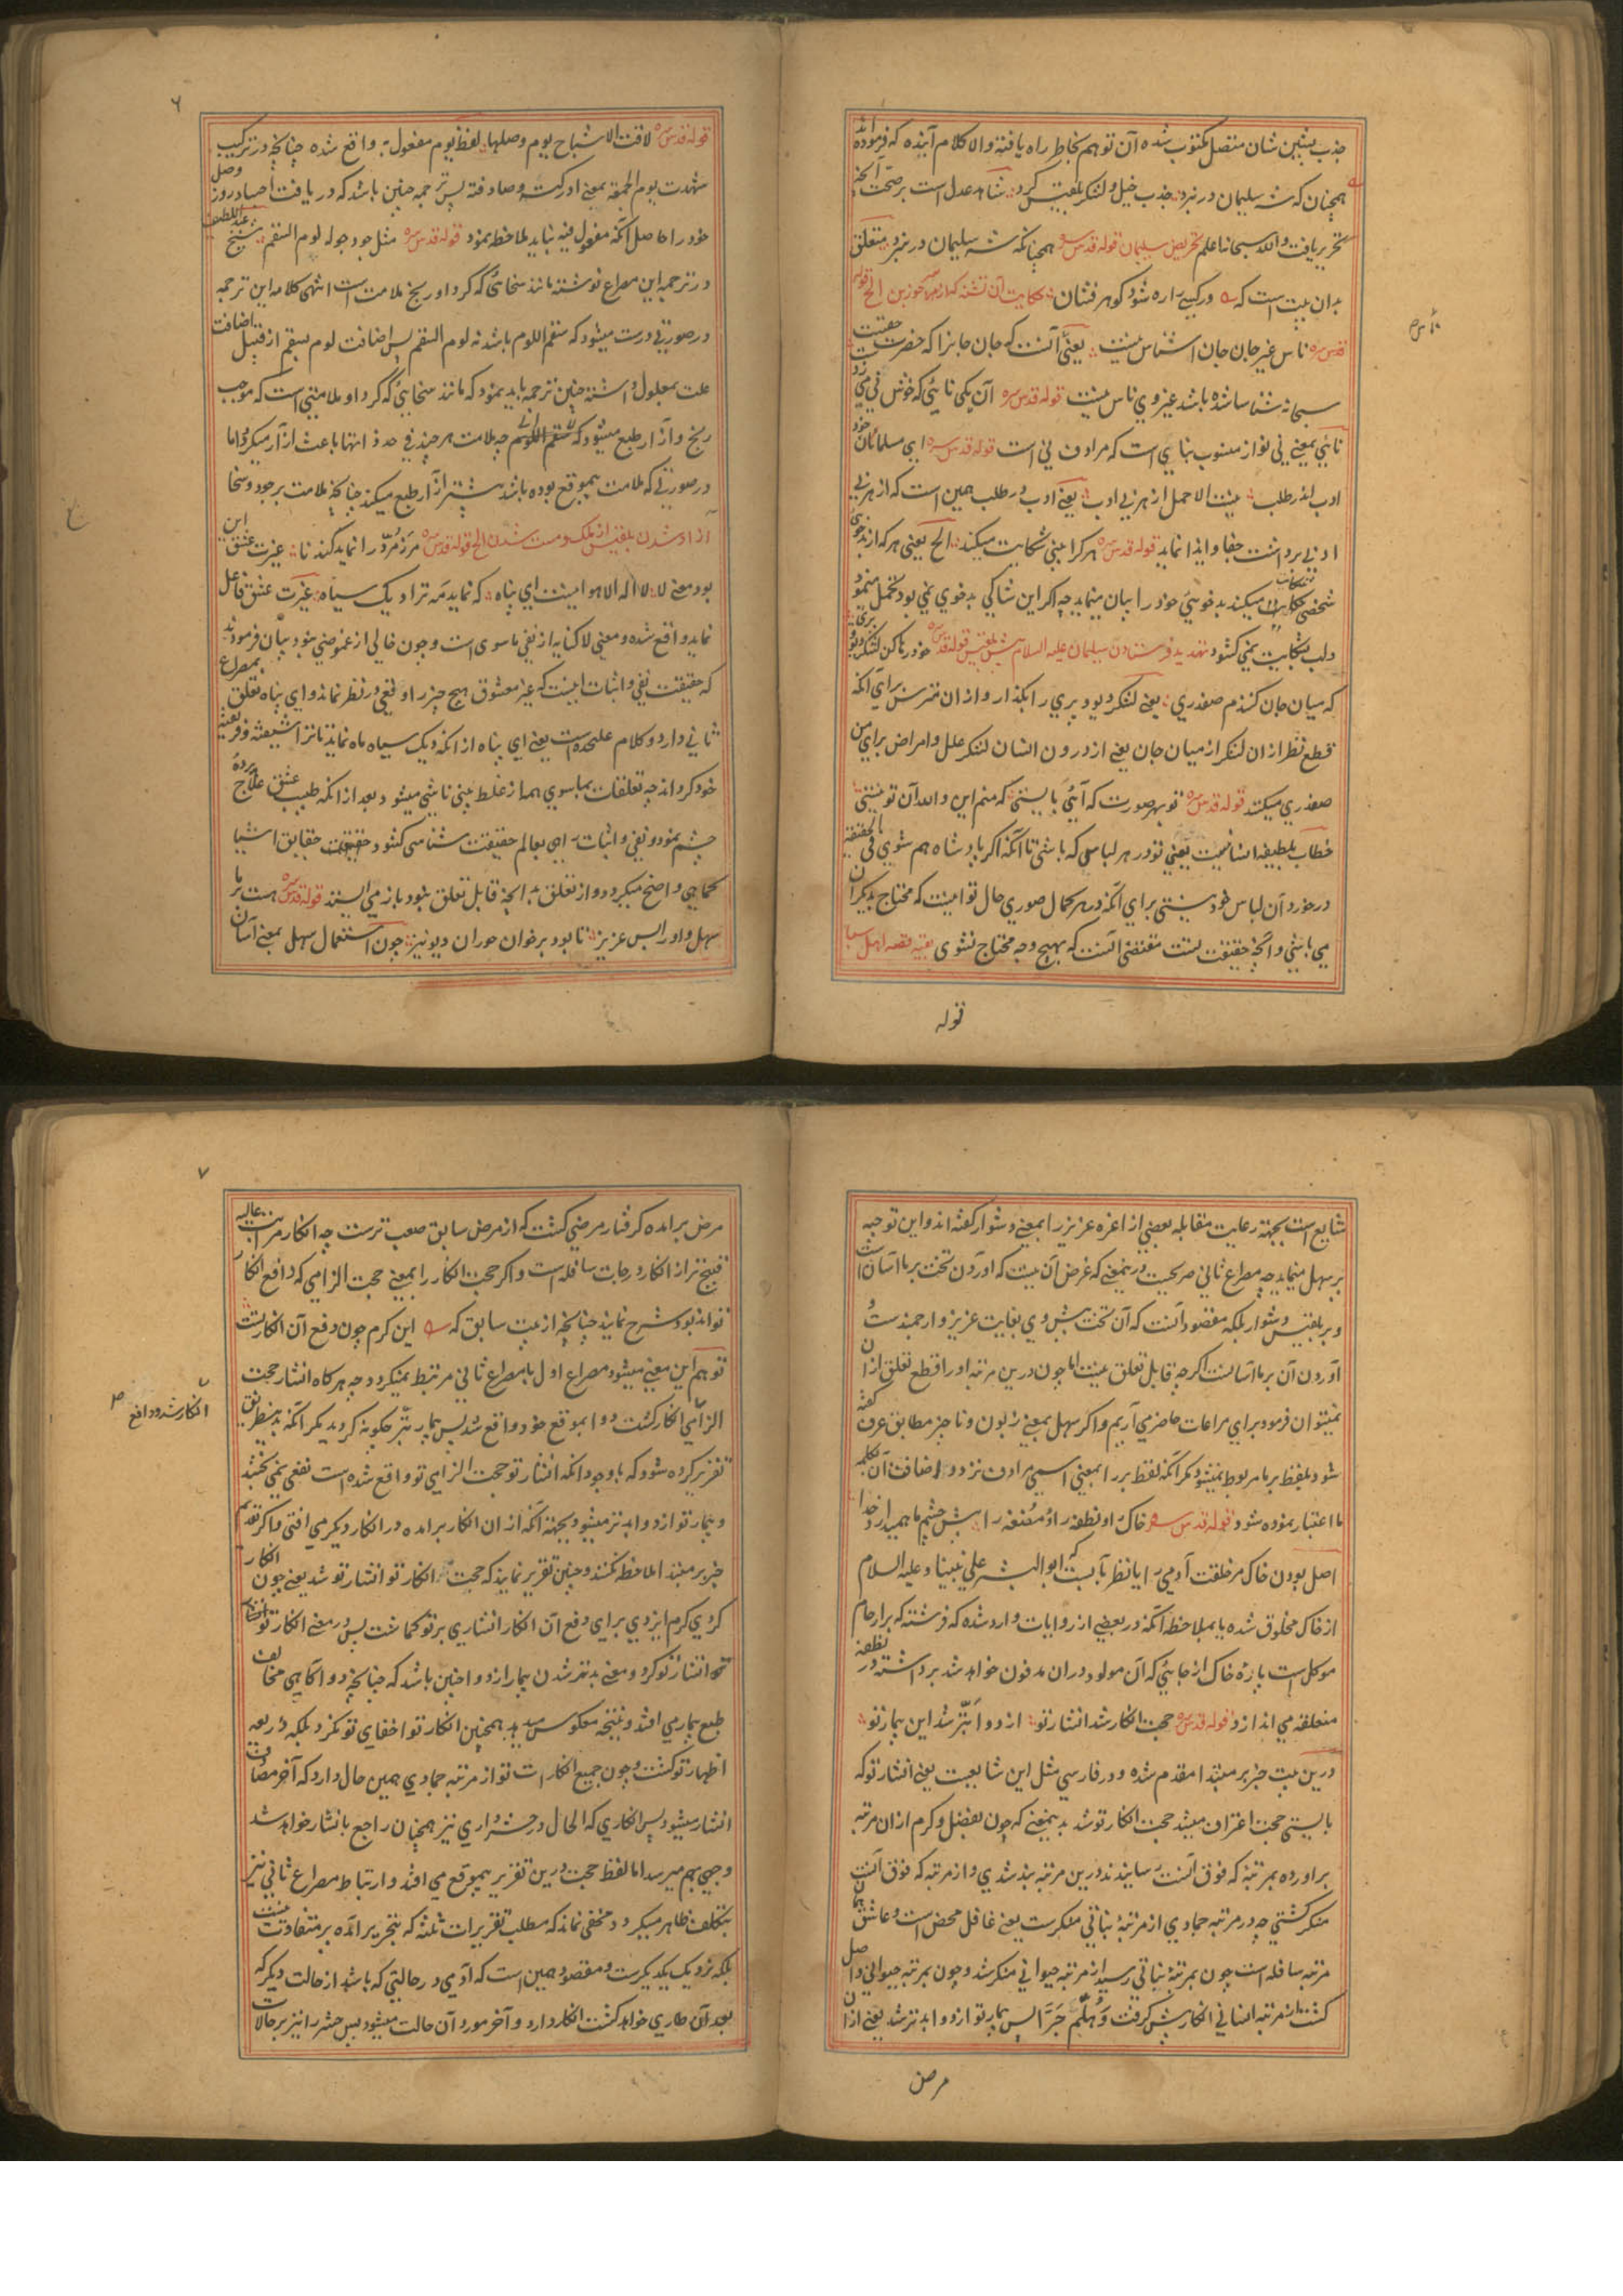 جذب پیشین شان متصل مکتوب شده آن توهم بخاطر راه یافته والا کلام آینده که فرموده اند
همچنان که شه سلیمان در نبرد جذب خیل و لشکر بلقیس کرد شاهد عدل است بر صحت آنچه
تحریر یافت والله سبحانه اعلم تحریض سلیمان قوله قدس سره همچنانکه شه سلیمان در نبرد متعلق
بدان بیت است که در کسی را ره شود گوهر فشان حکایت آن تشنه که از سر جوز بن الخ قوله
قدس سره ناس غیر جان جان اشناس نیست یعنی آنست که جان جانرا که حضرت حقیقت
سبحانه شناسا شده باشد غیر وی ناس نیست قوله قدس سره آن یکی نائی که خوش نی می زد
نائی بمعنی نی نواز منسوب بنای است که مرادف نی است قوله قدس سره ای مسلمان خود
ادب اندر طلب نیست الا حمل از هر بی ادب یعنی ادب در طلب همین است که از هر بی
ادبی برداشت جفا و ایذا نماید قوله قدس سره هر کرا بینی شکایت میکند الخ یعنی هر که از بدخوی
شخصی شکایت میکند بدخویی خود را بیان مینماید چه اگر این شاکی بدخوی نمی بود تحمل مینمود
و لب بشکایت نمی کشود تهدید فرستادن سلیمان علیه السلام پیش بلقیس قوله قدس سره خود رها کن لشکر دیو و پری
که میان جان کنندم صفدری یعنی لشکر دیو و پری را بگذار و ازان مترس برای آنکه
قطع نظر ازان لشکر از میان جان یعنی از درون انسان لشکر علل و امراض برای من
صفدری میکنند قوله قدس سره تو بهر صورت که آئی بایستی که منم این والله آن تو نیستی
خطاب بلطیفه انسانیت یعنی تو در هر لباسی که باشی تا آنکه اگر پادشاه هم شوی فی الحقیقه
در خورد آن لباس خود نیستی برای آنکه در هر کمال صوری حال تو اینست که محتاج بدیگران
می باشی و آنچه حقیقت تست مقتضی آنست که بهیچ وجه محتاج نشوی بقیه قصه اهل سبا
قوله
۶
قوله قدس سره لاقت الاشباح یوم وصلها لفظ یوم مفعول به واقع شده چنانچه در ترکیب
شهدت یوم الجمعة بمعنی ادرکته وصادفته پس ترجمه چنین باشد که دریافت اجساد روز وصل
خود را حاصل آنکه مفعول فیه نباید ملاحظه نمود قوله قدس سره مثل جود حوله لوم السقم شیخ عبداللطیف
در ترجمه این مصراع نوشته مانند سخائی که گرد او رنج ملامت است انتهی کلامه این ترجمه
در صورتی درست میشود که سقم اللوم باشد نه لوم السقم پس اضافت لوم بسقم از قبیل اضافت
علت بمعلول داشته چنین ترجمه باید نمود که مانند سخائی که گرد او ملامتی است که موجب
رنج و آزار طبع میشود چه ملامت هر چند فی حد ذاتها باعث آزار میگردد اما
در صورتی که ملامت بموقع بوده باشد بیشتر آزار طبع میکند چنانچه ملامت بر جود و سخا
آزاد شدن بلقیس از ملک و مست شدن الخ قوله قدس سره مر زمرد را نماید گندنا غیرت عشق این
بود معنی لا لا اله الا هو اینست ای پناه که نماید مه ترا دیک سیاه غیرت عشق فاعل
نماید واقع شده و معنی لا کنایه از نفی ماسوی است و چون خالی از غموضی نبود بیان فرمودند
که حقیقت نفی و اثبات اینست که غیر معشوق هیچ چیز را وقعی در نظر نماند و ای پناه تعلق بمصراع
ثانی دارد و کلام علیحده است یعنی ای پناه از آنکه دیک سیاه ماه نماید تا ترا شیفته و فریفته
خود گرداند چه تعلقات بماسوی همه از غلط بینی ناشی میشود بعد ازانکه طبیب عشق علاج پرده
چشم نمود و نفی و اثبات راهی بعالم حقیقت شناسی کشود حقیقت حقایق اشیا
کماهی واضح میگردد و از تعلق بدانچه قابل تعلق نبود باز می ایستد قوله قدس سره هست بر ما
سهل و او را بس عزیز تا بود بر خوان حوران دیو نیز چون استعمال سهل بمعنی آسان
شایع است بجهة رعایت مقابله بعضی از اعزه عزیز را بمعنی دشوار گفته اند و این توجیه
بر سهل مینماید چه مصراع ثانی صریحست درینمعنی که غرض آن نیست که آوردن تخت بر ما آسان است
و بر بلقیس دشوار بلکه مقصود آنست که آن تخت پیش وی بغایت عزیز و ارجمندست و
آوردن آن بر ما آسانست اگرچه قابل تعلق نیست اما چون درین مرتبه او را قطع تعلق ازان
نمیتوان فرمود برای مراعات حاضر می آریم و اگر سهل بمعنی زبون و ناچیز مطابق عرف گفته
شود بلفظ بر ما مربوط نمیشود مگر آنکه لفظ بر را بمعنی اسمی مرادف نزد و اضافت آن بکلمه
ما اعتبار نموده شود قوله قدس سره خاک را و نطفه را و مضغه را پیش چشم ما همیدارد خدا
اصل بودن خاک مر خلقت آدمی را یا نظر بآنست که ابو البشر علی نبینا و علیه السلام
از خاک مخلوق شده یا بملاحظه آنکه در بعضی از روایات وارد شده که فرشته که بر ارحام
موکل است پاره خاک از جائی که آن مولود دران مدفون خواهد شد برداشته در نطفه
منعلقه می اندازد قوله قدس سره حجت انکار شد انشار تو از دوا بتر شد این بیمار تو
درین بیت خبر بر مبتدا مقدم شده و در فارسی مثل این شایعست یعنی انشار تو که
بایستی حجت اعتراف میشد حجت انکار تو شد بدینمعنی که چون بفضل و کرم ازان مرتبه
برآورده بمرتبه که فوق آنست رسانیدند درین مرتبه بند شدی و از مرتبه که فوق آنست
منکر گشتی چه در مرتبه جمادی از مرتبهٔ نباتی منکرست یعنی غافل محض است و عاشق همان
مرتبه سافله است چون بمرتبهٔ نباتی رسید از مرتبه حیوانی منکر شد و چون بمرتبه حیوانی واصل
گشت از مرتبه انسانی انکار پیش گرفت وهلم جرا پس بیمار تو از دوا بدتر شد یعنی ازان
مرض
۷
مرض برآمده گرفتار مرضی گشت که از مرض سابق صعب ترست چه انکار مراتب عالیه
قبیح تر از انکار درجات سافله است و اگر حجت انکار را بمعنی حجت الزامی که دافع انکار
تواند بود شرح نمایند چنانچه از بیت سابق که این کرم چون دفع آن انکار تست
توهم این معنی میشود مصراع اول با مصراع ثانی مرتبط نمیگردد چه هرگاه انشار حجت
الزامی انکار گشت دوا بموقع خود واقع شد پس بیمار بتر چگونه گردید مگر آنکه بدینطریق
تقریر کرده شود که باوجود آنکه انشار تو حجت الزامی تو واقع شده است نفعی نمی بخشد
و بیمار تو از دوا بدتر میشود بجهة آنکه ازان انکار برآمده در انکار دیگر می افتی و اگر تقدیم
خبر بر مبتدا ملاحظه نکنند و چنین تقریر نمایند که حجت انکار تو انشار تو شد یعنی چون انکار
کردی کرم ایزدی برای دفع آن انکار انشاری بر تو گماشت پس در معنی انکار تو
انشار تو کرد و معنی بدتر شدن بیمار از دوا چنین باشد که چنانچه دوا گاهی مخالف
طبع بیمار می افتد و نتیجه معکوس میدهد همچنین انکار تو اخفای تو نکرد بلکه ذریعه
اظهار تو گشت و چون جمیع انکارات تو از مرتبه جمادی همین حال دارد که آخر مضاف
انشار میشود پس انکاری که الحال در حشر داری نیز همچنان راجع بانشار خواهد شد
وجهی بهم میرسد اما لفظ حجت درین تقریر بموقع می افتد و ارتباط مصراع ثانی نیز
بتکلف ظاهر میگردد و مخفی نماند که مطلب تقریرات ثلثه که بتحریر برآمده پر متفاوت نیست
بلکه نزدیک یکدیگرست و مقصود همین است که آدمی در حالتی که باشد از حالت دیگر که
بعد آن طاری خواهد گشت انکار دارد و آخر مورد آن حالت میشود پس حشر را نیز بر حالات
انکار شد و دافع